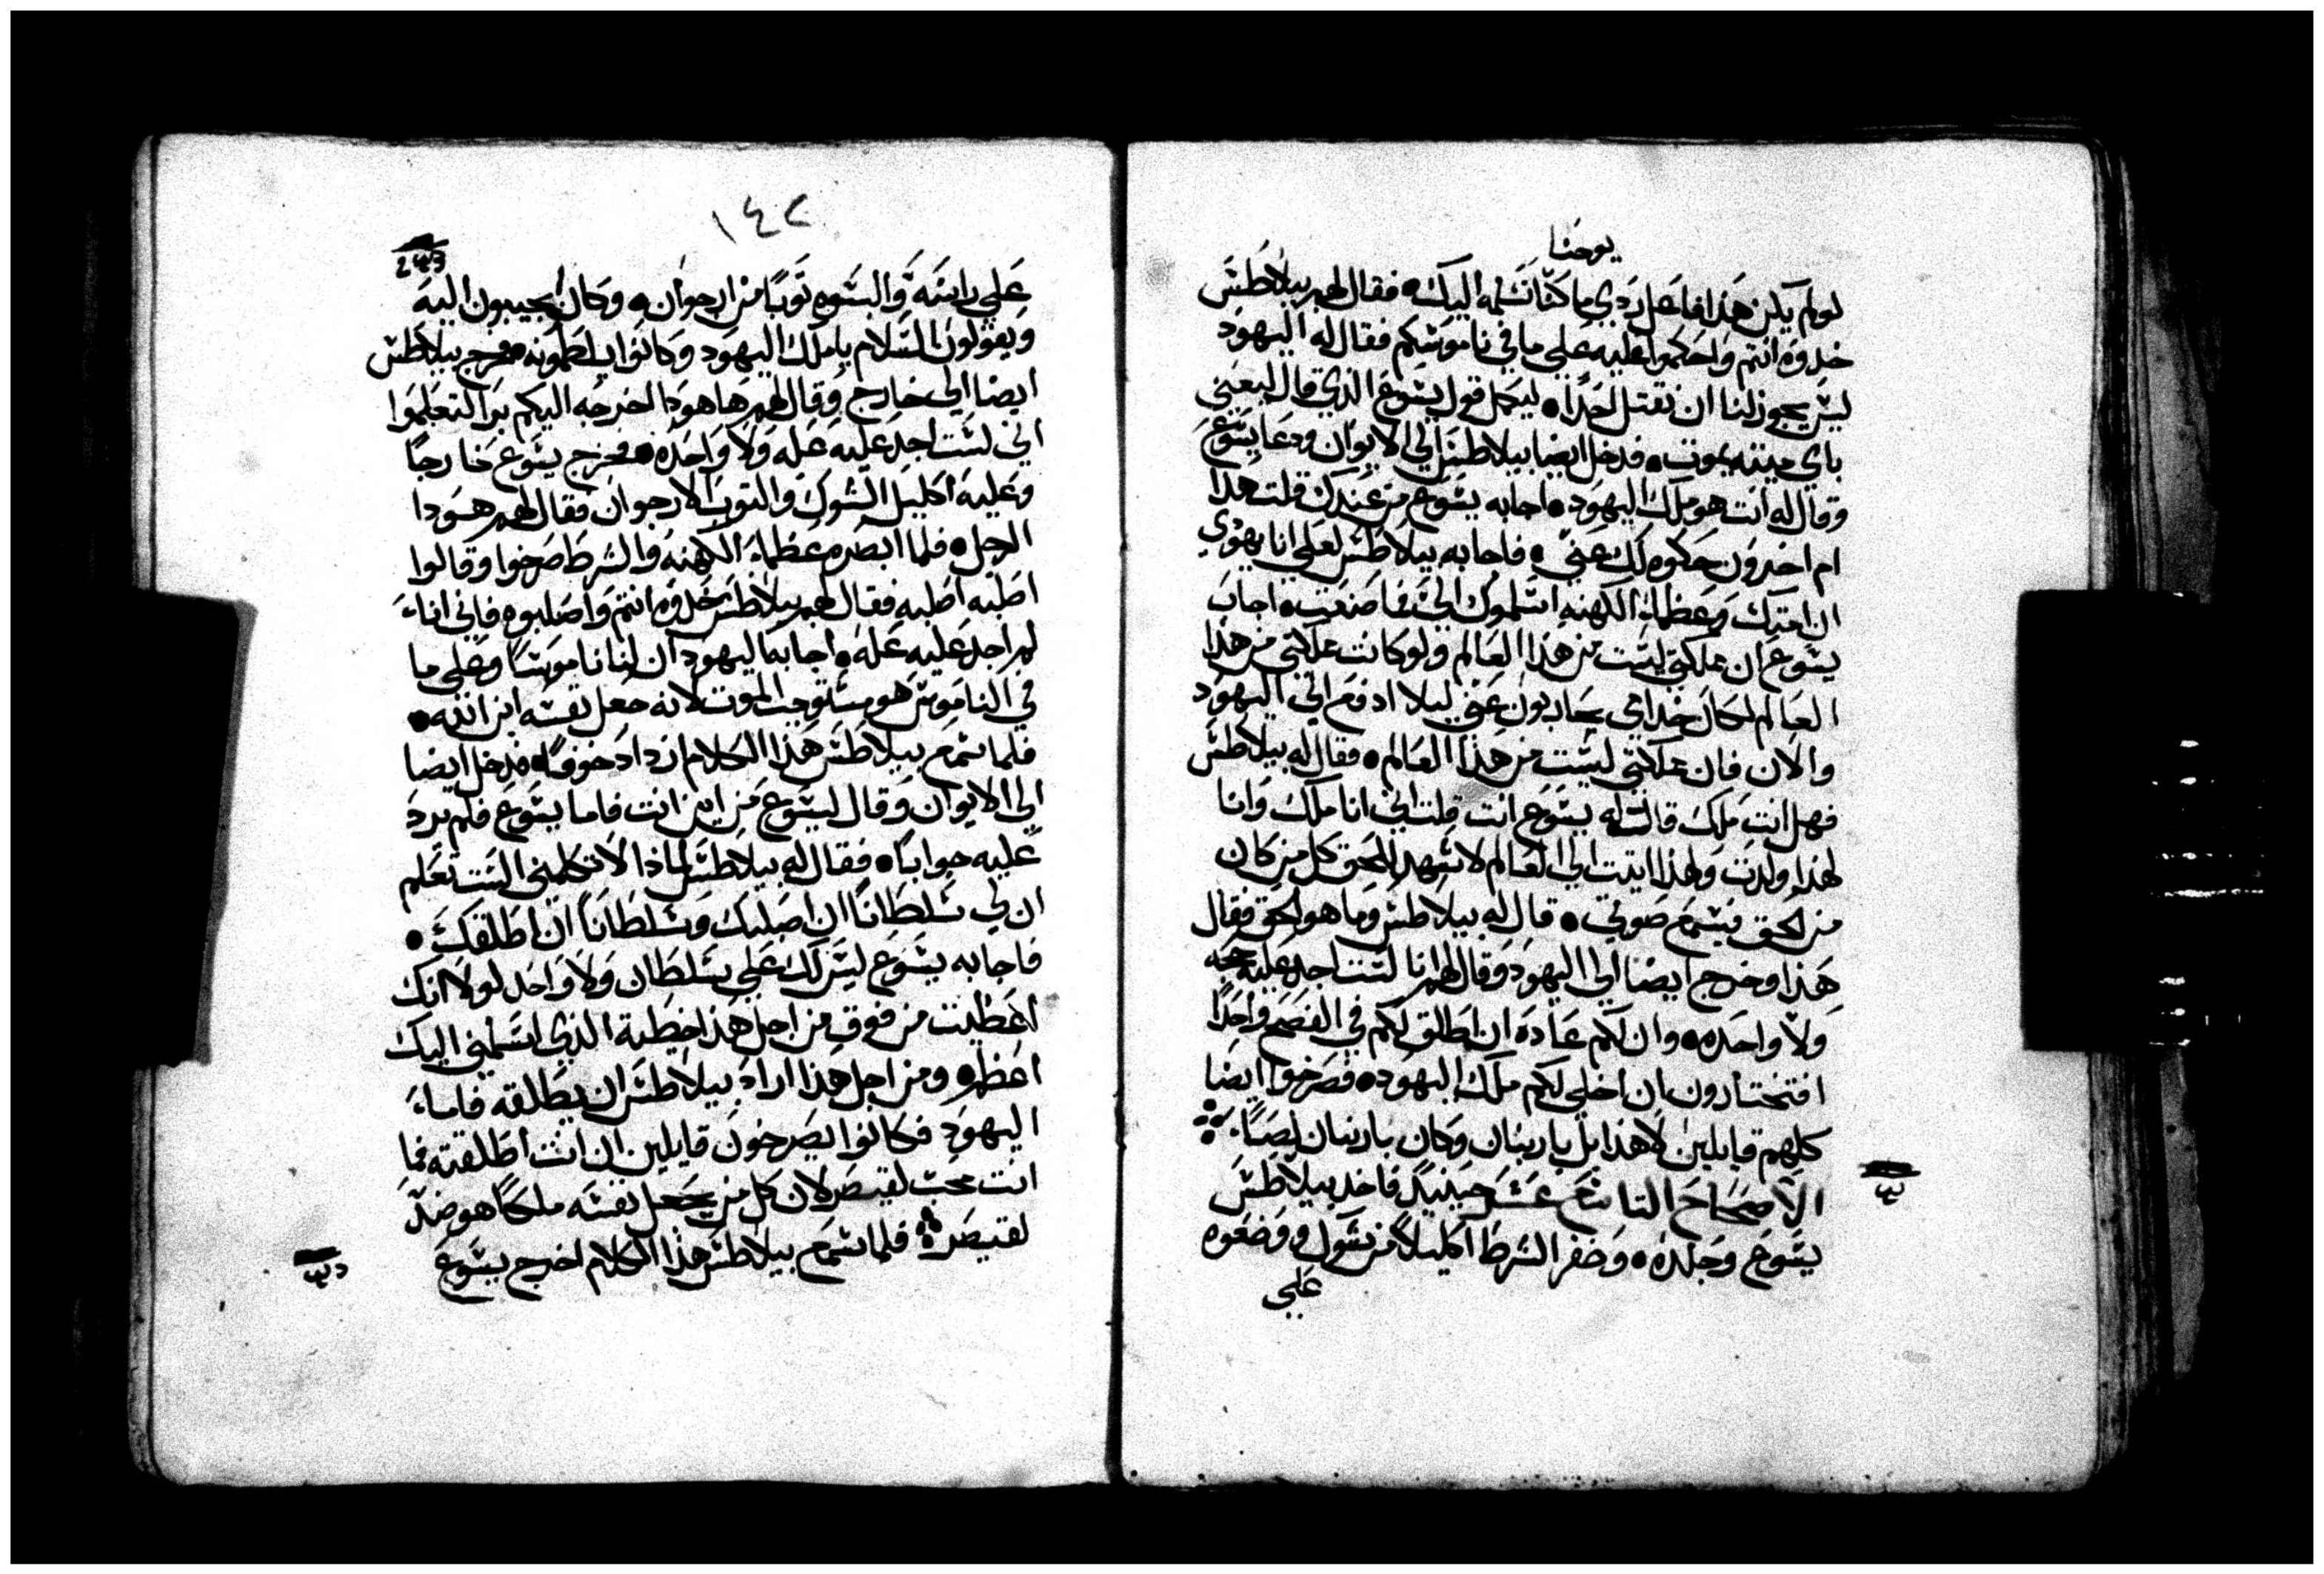 يوحنا
لولم يكن هذا فاعل ردي ما كنا نسلمه اليك • فقال لهم بيلاطس
خدوه انتم واحكموا عليه على ما في ناموسكم فقال له اليهود
ليس يجوز لنا ان نقتل احدا • ليكمل قول يسوع الذي قال ليعني
باي ميته يموت • فدخل ايضا بيلاطس الي الايوان ودعا يسوع
وقال له انت هو ملك اليهود • اجابه يسوع من عندك قلت هدا
ام اخرون حكوه لك عني • فاجابه بيلاطس لعلي انا يهودي
ان امتك وعظماء الكهنه اسلموك الي فما صنعت • اجاب
يسوع ان مملكتي ليست من هذا العالم ولو كانت مملكتي من هذا
العالم لكان خدامي يحاربون عني ليلا ادفع الي اليهود
والان فان مملكتي ليست من هذا العالم • فقال له بيلاطس
فهل انت ملك قال له يسوع انت قلت اني انا ملك وانا
لهذا ولدت ولهذا اتيت الي العالم لاشهد للحق كل من كان
من الحق فيسمع صوتي • قال له بيلاطس وما هو الحق فقال
هذا وخرج ايضا الي اليهود وقال لهم انا لست اجد عليه حجه
ولا واحده • وان لكم عاده ان اطلق لكم في الفصح واحدا
افتختارون ان اخلي لكم ملك اليهود • فصرخوا ايضا
كلهم قايلين لا هذا بل باربنان وكان باربنان لصا
الاصحاح التاسع عشر حينيد فاخد بيلاطس
يسوع وجلده • وضفر الشرط اكليلا من شوك ووضعوه
علي
١٤٢
243
علي راسه والبسوه توبا من ارجوان • وكان يجيبون اليه
ويقولون السلام يا ملك اليهود وكانوا يلطمونه • فخرج بيلاطس
ايضا الي خارج وقال لهم ها هودا اخرجه اليكم برا لتعلموا
اني لست اجد عليه عله ولا واحده • فخرج يسوع خارجا
وعليه اكليل الشوك والتوب الارجوان فقال لهم هودا
الرجل • فلما ابصره عظماء الكهنه والشرط صرخوا وقالوا
اصلبه اصلبه فقال لهم بيلاطس خدوه انتم واصلبوه فاني انا
لم اجد عليه عله • اجابه اليهود ان لنا ناموسا وعلى ما
في الناموس هو مستوجب الموت لانه جعل نفسه ابن الله •
فلما سمع بيلاطس هذا الكلام ازداد خوفا • فدخل ايضا
الي الايوان وقال ليسوع من اين انت فاما يسوع فلم يرد
عليه جوابا • فقال له بيلاطس لماذا لا تكلمني الست تعلم
ان لي سلطانا ان اصلبك وسلطانا ان اطلقك •
فاجابه يسوع ليس لك علي سلطان ولا واحد لولا انك
اعطيت من فوق من اجل هذا خطية الذي اسلمني اليك
اعظم • ومن اجل هذا اراد بيلاطس ان يطلقه فاما
اليهود فكانوا يصرخون قايلين ان انت اطلقته فما
انت محب لقيصر لان كل من يجعل نفسه ملكا هو ضد
لقيصر فلما سمع بيلاطس هذا الكلام اخرج يسوع